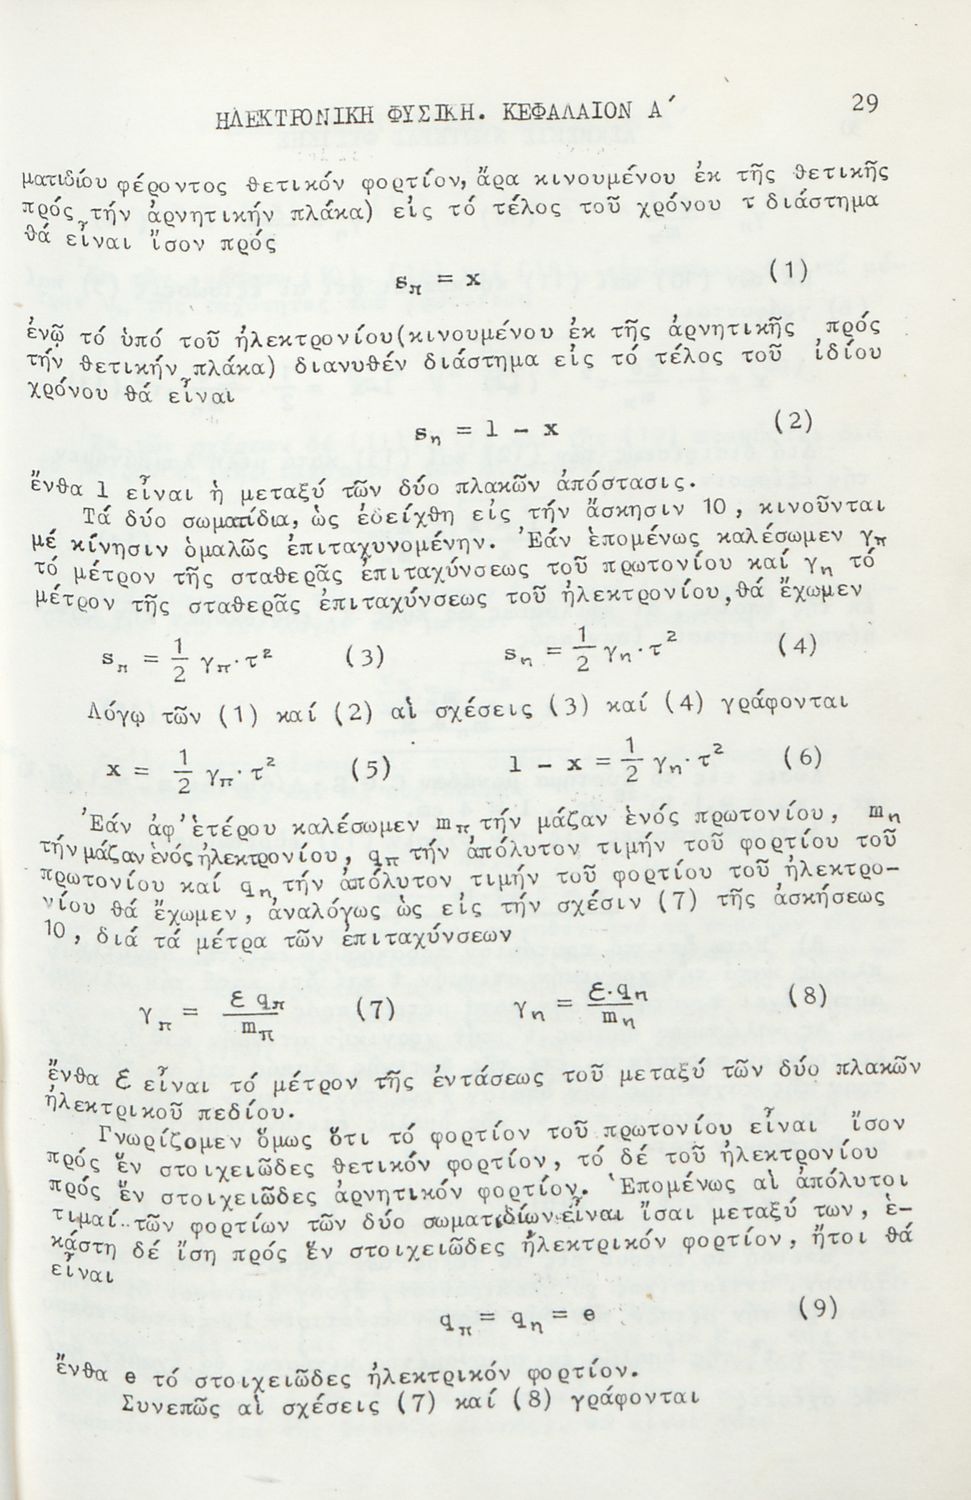 ΗΛΕΚΤΡΟΝΙΚΗ ΦΥΣΙΚΗ. ΚΕΦΑΛΑΙΟΝ Α΄ 29
ματιδίου φέροντος θετικόν φορτίον, ἄρα κινουμένου ἐκ τῆς θετικῆς
πρός τήν ἀρνητικήν πλάκα) εἰς τό τέλος τοῦ χρόνου τ διάστημα
θά εἶναι ἴσον πρός
s_π = x (1)
ἐνῷ τό ὑπό τοῦ ἠλεκτρονίου(κινουμένου ἐκ τῆς ἀρνητικῆς πρός
τήν θετικήν πλάκα) διανυθέν διάστημα εἰς τό τέλος τοῦ ἰδίου
χρόνου θά εἶναι
s_η = l - x (2)
ἔνθα l εἶναι ἡ μεταξύ τῶν δύο πλακῶν ἀπόστασις.
Τά δύο σωματίδια, ὡς ἐδείχθη εἰς τήν ἄσκησιν 10, κινοῦνται
μέ κίνησιν ὁμαλῶς ἐπιταχυνομένην. Ἐάν ἑπομένως καλέσωμεν γ_π
τό μέτρον τῆς σταθερᾶς ἐπιταχύνσεως τοῦ πρωτονίου καί γ_η τό
μέτρον τῆς σταθερᾶς ἐπιταχύνσεως τοῦ ἠλεκτρονίου, θά ἔχωμεν
s_π = 1/2 γ_π·τ² (3) s_η = 1/2 γ_η·τ² (4)
Λόγῳ τῶν (1) καί (2) αἱ σχέσεις (3) καί (4) γράφονται
x = 1/2 γ_π·τ² (5) l - x = 1/2 γ_η·τ² (6)
Ἐάν ἀφ'ἑτέρου καλέσωμεν m_π τήν μάζαν ἑνός πρωτονίου, m_η
τήν μάζαν ἑνός ἠλεκτρονίου, q_π τήν ἀπόλυτον τιμήν τοῦ φορτίου τοῦ
πρωτονίου καί q_η τήν ἀπόλυτον τιμήν τοῦ φορτίου τοῦ ἠλεκτρο-
νίου θά ἔχωμεν, ἀναλόγως ὡς εἰς τήν σχέσιν (7) τῆς ἀσκήσεως
10, διά τά μέτρα τῶν ἐπιταχύνσεων
γ_π = ℰ q_π / m_π (7) γ_η = ℰ·q_η / m_η (8)
ἔνθα ℰ εἶναι τό μέτρον τῆς ἐντάσεως τοῦ μεταξύ τῶν δύο πλακῶν
ἠλεκτρικοῦ πεδίου.
Γνωρίζομεν ὅμως ὅτι τό φορτίον τοῦ πρωτονίου εἶναι ἴσον
πρός ἕν στοιχειῶδες θετικόν φορτίον, τό δέ τοῦ ἠλεκτρονίου
πρός ἕν στοιχειῶδες ἀρνητικόν φορτίον. Ἑπομένως αἱ ἀπόλυτοι
τιμαί τῶν φορτίων τῶν δύο σωματιδίων εἶναι ἴσαι μεταξύ των, ἑ-
κάστη δέ ἴση πρός ἕν στοιχειῶδες ἠλεκτρικόν φορτίον, ἤτοι θά
εἶναι
q_π = q_η = e (9)
ἔνθα e τό στοιχειῶδες ἠλεκτρικόν φορτίον.
Συνεπῶς αἱ σχέσεις (7) καί (8) γράφονται